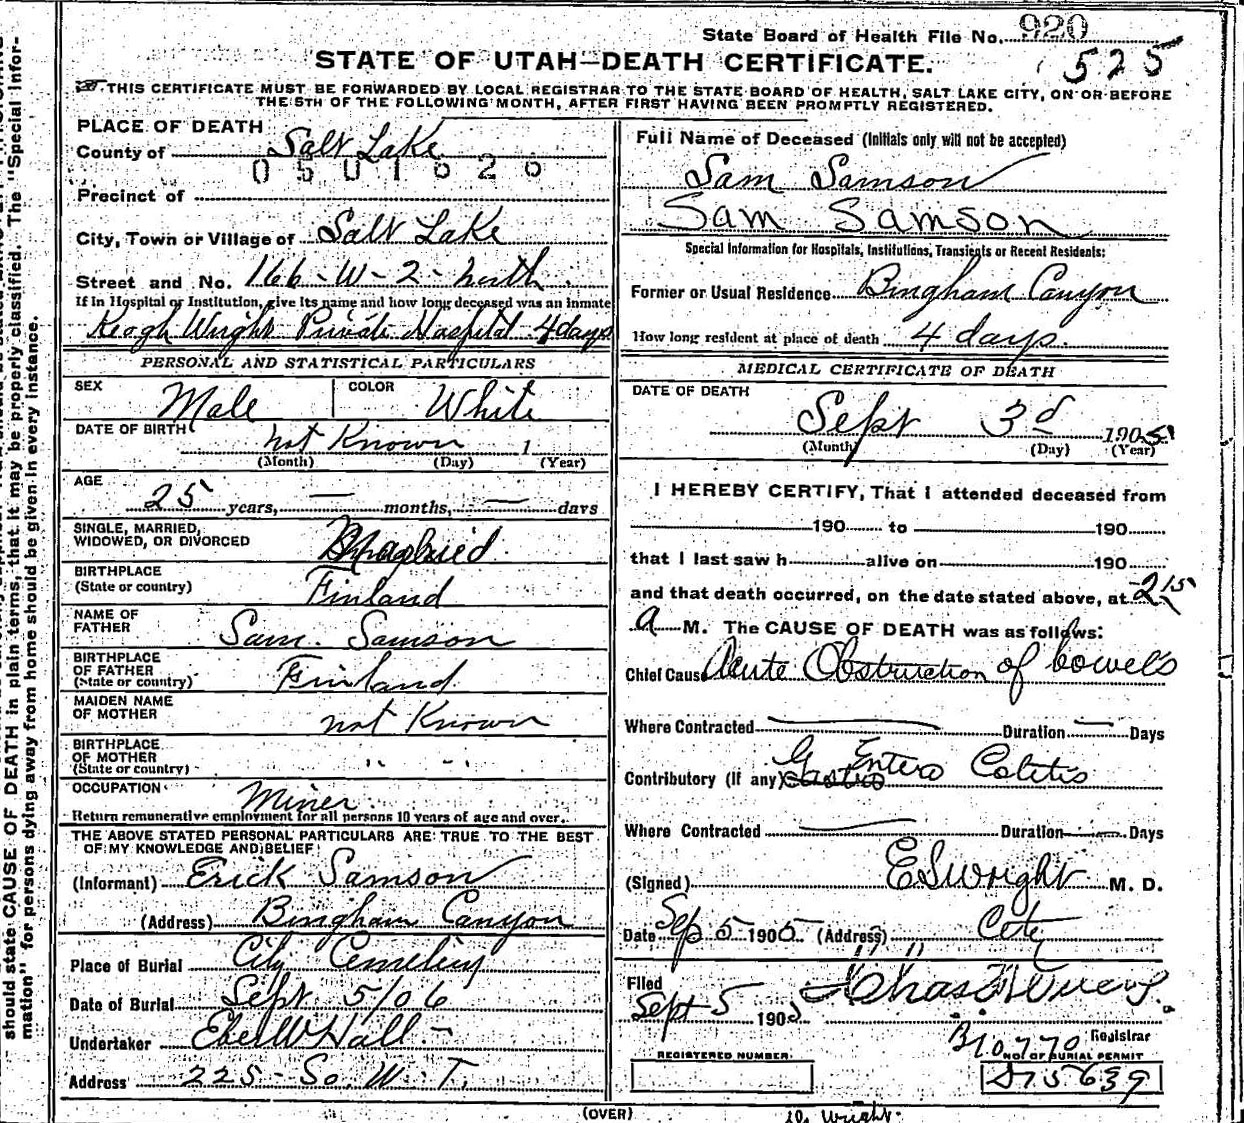 State Board of Health File No. 920
525
STATE OF UTAH—DEATH CERTIFICATE.
THIS CERTIFICATE MUST BE FORWARDED BY LOCAL REGISTRAR TO THE STATE BOARD OF HEALTH, SALT LAKE CITY, ON OR BEFORE
THE 5TH OF THE FOLLOWING MONTH, AFTER FIRST HAVING BEEN PROMPTLY REGISTERED.
should state CAUSE OF DEATH in plain terms, that it may be properly classified. The "Special Infor-
mation" for persons dying away from home should be given in every instance.
PLACE OF DEATH
County of Salt Lake
0501626
Precinct of
City, Town or Village of Salt Lake
Street and No. 166-W-2-North
If in Hospital or Institution, give its name and how long deceased was an inmate
Keogh Wright Private Hospital 4 days
PERSONAL AND STATISTICAL PARTICULARS
SEX Male COLOR White
DATE OF BIRTH not Known 1
(Month) (Day) (Year)
AGE
25 years, — months, — days
SINGLE, MARRIED,
WIDOWED, OR DIVORCED Married
BIRTHPLACE
(State or country) Finland
NAME OF
FATHER Sam. Samson
BIRTHPLACE
OF FATHER
(State or country) Finland
MAIDEN NAME
OF MOTHER not Known
BIRTHPLACE
OF MOTHER
(State or country) " "
OCCUPATION Miner
Return remunerative employment for all persons 10 years of age and over.
THE ABOVE STATED PERSONAL PARTICULARS ARE TRUE TO THE BEST
OF MY KNOWLEDGE AND BELIEF
(Informant) Erick Samson
(Address) Bingham Canyon
Place of Burial City Cemetery
Date of Burial Sept 5/06
Undertaker Eber W Hall
Address 225-So. W. T.
Full Name of Deceased (Initials only will not be accepted)
Sam Samson
Sam Samson
Special Information for Hospitals, Institutions, Transients or Recent Residents:
Former or Usual Residence Bingham Canyon
How long resident at place of death 4 days.
MEDICAL CERTIFICATE OF DEATH
DATE OF DEATH
Sept 3d 1905
(Month) (Day) (Year)
I HEREBY CERTIFY, That I attended deceased from
190 to 190
that I last saw h alive on 190
and that death occurred, on the date stated above, at 2 15
a M. The CAUSE OF DEATH was as follows:
Chief Cause Acute Obstruction of bowels
Where Contracted — Duration — Days
Contributory (if any) Gastro Entero Colitis
Where Contracted — Duration — Days
(Signed) E S Wright M. D.
Date Sep 5 1905 (Address) City
Filed
Sept 5 1905
Registrar
B10770
REGISTERED NUMBER
NO. OF BURIAL PERMIT
D15639
(OVER)
Dr Wright